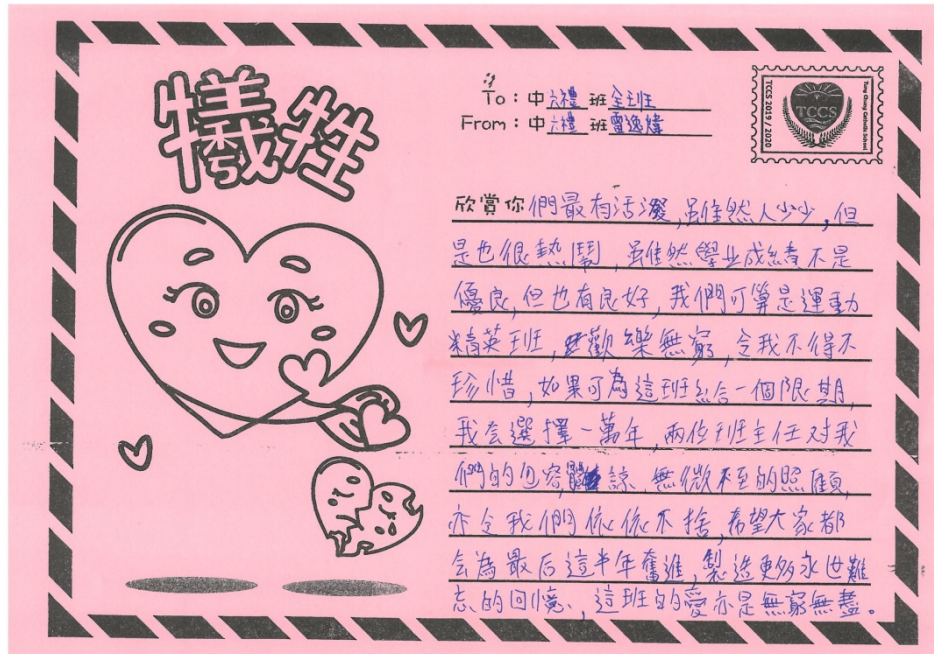 犠牲
To：中六禮班全班
From：中六禮班雷逸煒
TCCS 2019 / 2020
Tung Chung Catholic School
TCCS
欣賞你們最有活潑，虽隹然人少少，但
是也很熱鬧，虽隹然學业成績不是
優良，但也有良好，我們可算是運動
精英班，歡樂無窮，令我不得不
珍惜，如果可為這班給一個限期，
我会選擇一萬年，兩位班主任对我
們的包容體諒，無微不至的照顧，
亦令我們依依不捨，希望大家都
会為最后這半年奮進，製造更多永世難
忘的回憶，這班的愛亦是無窮無盡。